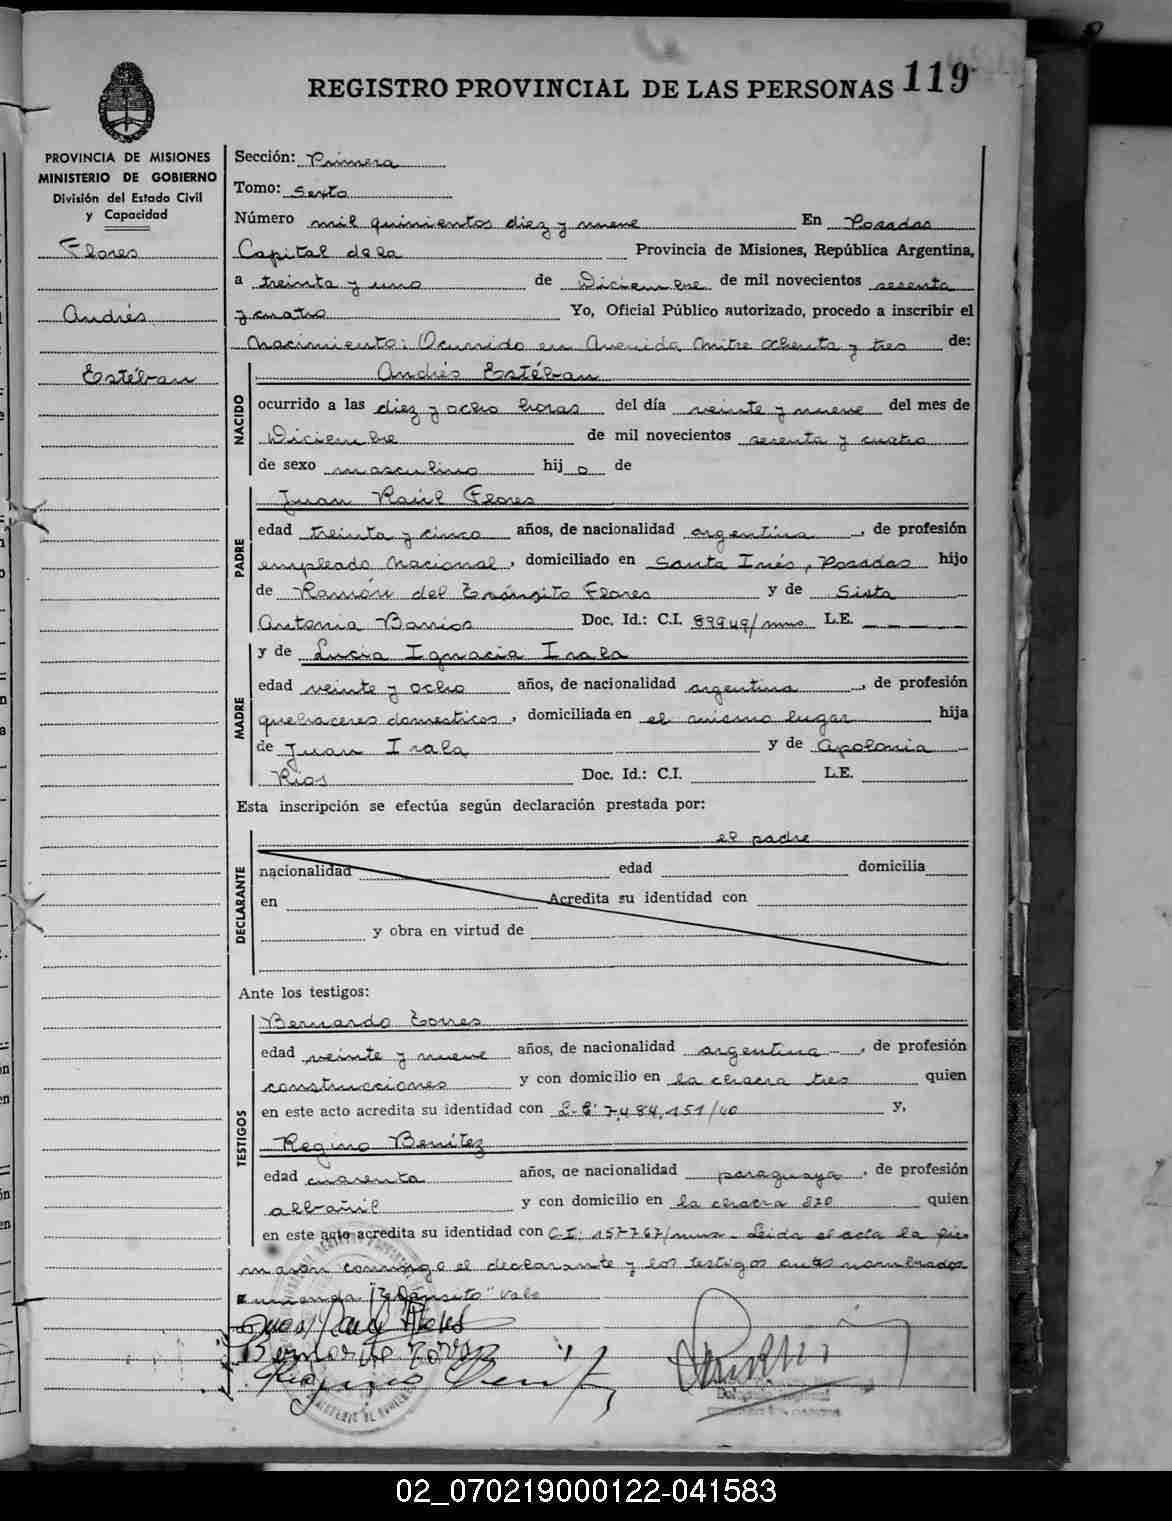 REGISTRO PROVINCIAL DE LAS PERSONAS 119
PROVINCIA DE MISIONES
MINISTERIO DE GOBIERNO
División del Estado Civil
y Capacidad
Flores
Andrés
Estéban
Sección: Primera
Tomo: Sexto
Número mil quinientos diez y nueve En Posadas
Capital de la Provincia de Misiones, República Argentina,
a treinta y uno de Diciembre de mil novecientos sesenta
y cuatro Yo, Oficial Público autorizado, procedo a inscribir el
Nacimiento: Ocurrido en Avenida Mitre ochenta y tres de:
NACIDO
Andrés Estéban
ocurrido a las diez y ocho horas del día veinte y nueve del mes de
Diciembre de mil novecientos sesenta y cuatro
de sexo masculino hij o de
PADRE
Juan Raúl Flores
edad treinta y cinco años, de nacionalidad argentina, de profesión
empleado Nacional, domiciliado en Santa Inés, Posadas hijo
de Ramón del Tránsito Flores y de Sixta
Antonia Barrios Doc. Id.: C.I. 89949/mnes L.E. _ _ _ _
MADRE
y de Lucia Ignacia Irala
edad veinte y ocho años, de nacionalidad argentina, de profesión
quehaceres domesticos, domiciliada en el mismo lugar hija
de Juan Irala y de Apolonia
Rios Doc. Id.: C.I. L.E.
Esta inscripción se efectúa según declaración prestada por:
DECLARANTE
el padre
nacionalidad edad domicilia
en Acredita su identidad con
y obra en virtud de
Ante los testigos:
TESTIGOS
Bernardo Torres
edad veinte y nueve años, de nacionalidad argentina, de profesión
construcciones y con domicilio en la chacra tres quien
en este acto acredita su identidad con L.E. 7,484,151/40 y,
Regino Benítez
edad cuarenta años, de nacionalidad paraguaya, de profesión
albañil y con domicilio en la chacra quien
en este acto acredita su identidad con C.I. 157767/mnes. Leida el acta la fir
maron conmigo el declarante y los testigos antes nombrados
enmienda "Tránsito" Vale
Juan Raul Flores
Bernardo Torres
Regino Benítez
02_070219000122-041583